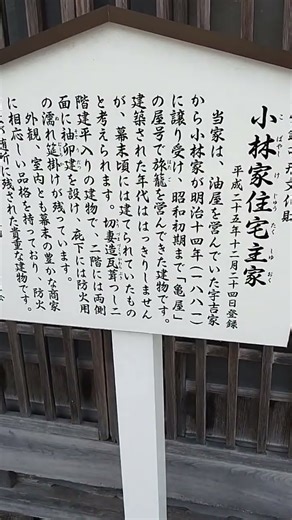 有形文化財
小林家住宅主家
平成二十五年十二月二十四日登録
当家は、油屋を営んでいた宇吉家
から小林家が明治十四年(一八八一)
に譲り受け、昭和初期まで「亀屋」
の屋号で旅籠を営んできた建物です。
建築された年代ははっきりしません
が、幕末頃には建てられていたもの
と考えられます。切妻造瓦葺つし二
階建平入りの建物で、二階には両側
面に袖卯建を設け、庇下には防火用
の濡れ筵掛けが残っています。
外観、室内とも幕末の豊かな商家
に相応しい品格を持っており、防火
が随所に残された貴重な建物です。